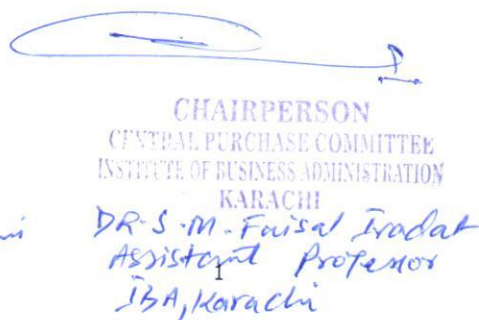 CHAIRPERSON
CENTRAL PURCHASE COMMITTEE
INSTITUTE OF BUSINESS ADMINISTRATION
KARACHI
DR. S. M. Faisal Iradat
Assistant Professor
1
IBA, Karachi